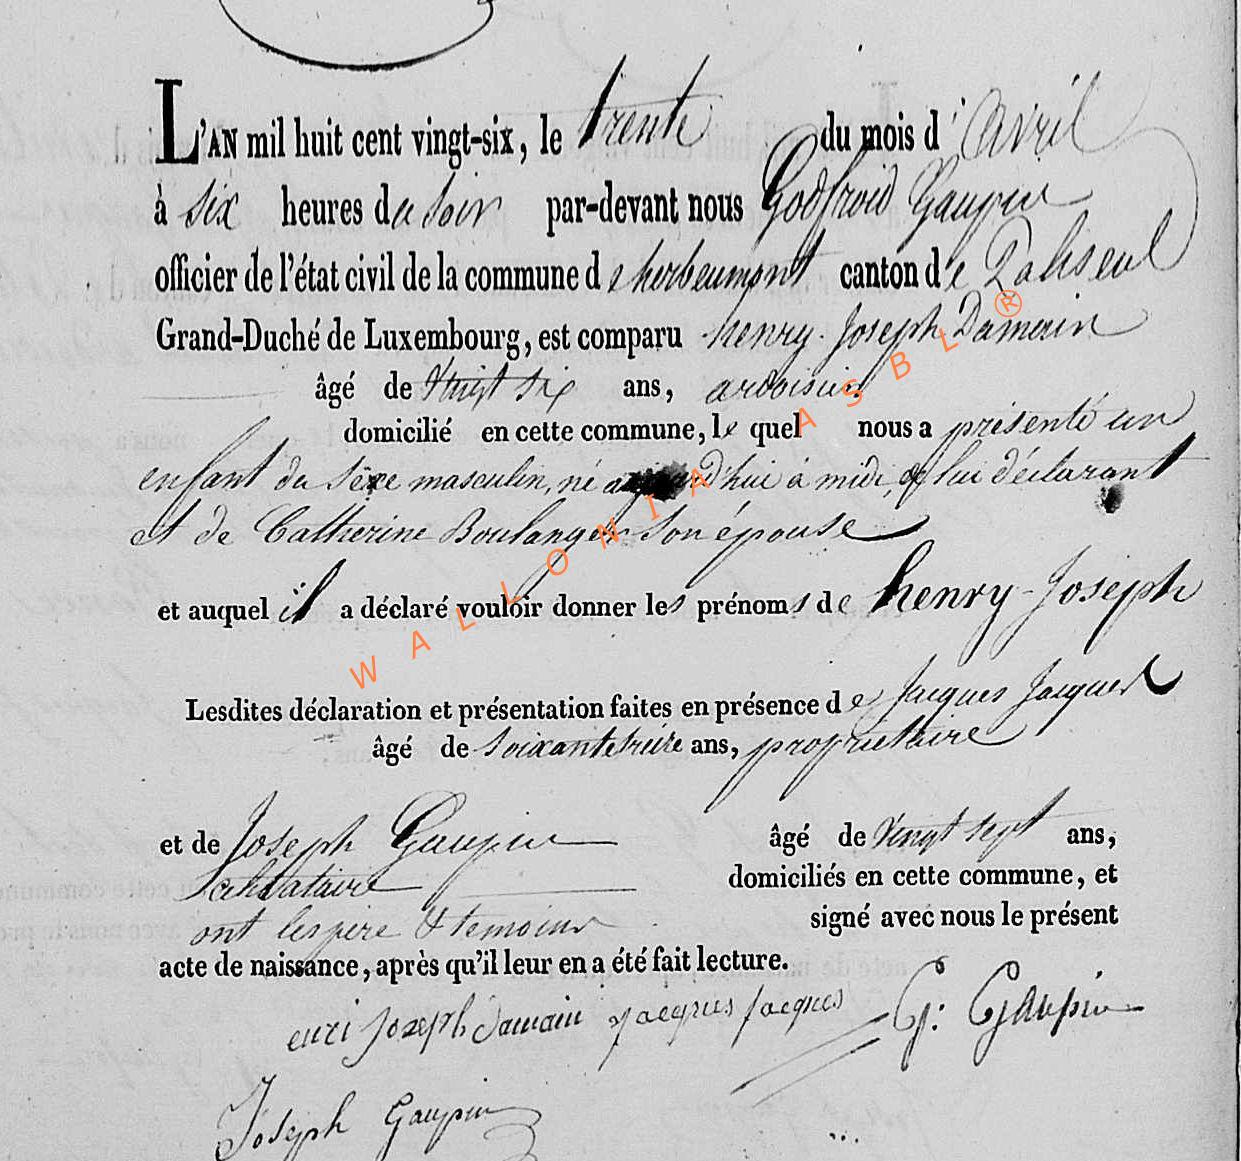 L'AN mil huit cent vingt-six, le trente du mois d'avril
à six heures du soir par-devant nous Godfroid Gaupin
officier de l'état civil de la commune de herbeumont canton de Paliseul
Grand-Duché de Luxembourg, est comparu henry-Joseph Damain
âgé de vingt six ans, ardoisier
domicilié en cette commune, le quel nous a présenté un
enfant du sexe masculin, né aujourd'hui à midi, de lui déclarant
et de Catherine Boulanger son épouse
et auquel il a déclaré vouloir donner les prénoms de henry-Joseph
Lesdites déclaration et présentation faites en présence de Jacques Jacques
âgé de soixante treize ans, propriétaire
et de Joseph Gaupin âgé de vingt sept ans,
domiciliés en cette commune, et
ont les père & temoins signé avec nous le présent
acte de naissance, après qu'il leur en a été fait lecture.
enri Joseph damain Jacques Jacques G: Gaupin
Joseph Gaupin
WALLONIA ASBL ®